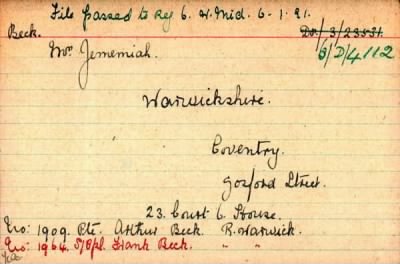 File passed to Reg 6. W. Mid. 6-1-21.
Beck.
Do/3/23531.
Mr. Jememiah.
6/D/4112
Warwickshire.
Coventry.
Gosford Street.
23. Court 6 House.
No: 1909. Pte. Arthur Beck. R. Warwick.
No: 1964. Frank Beck. " "